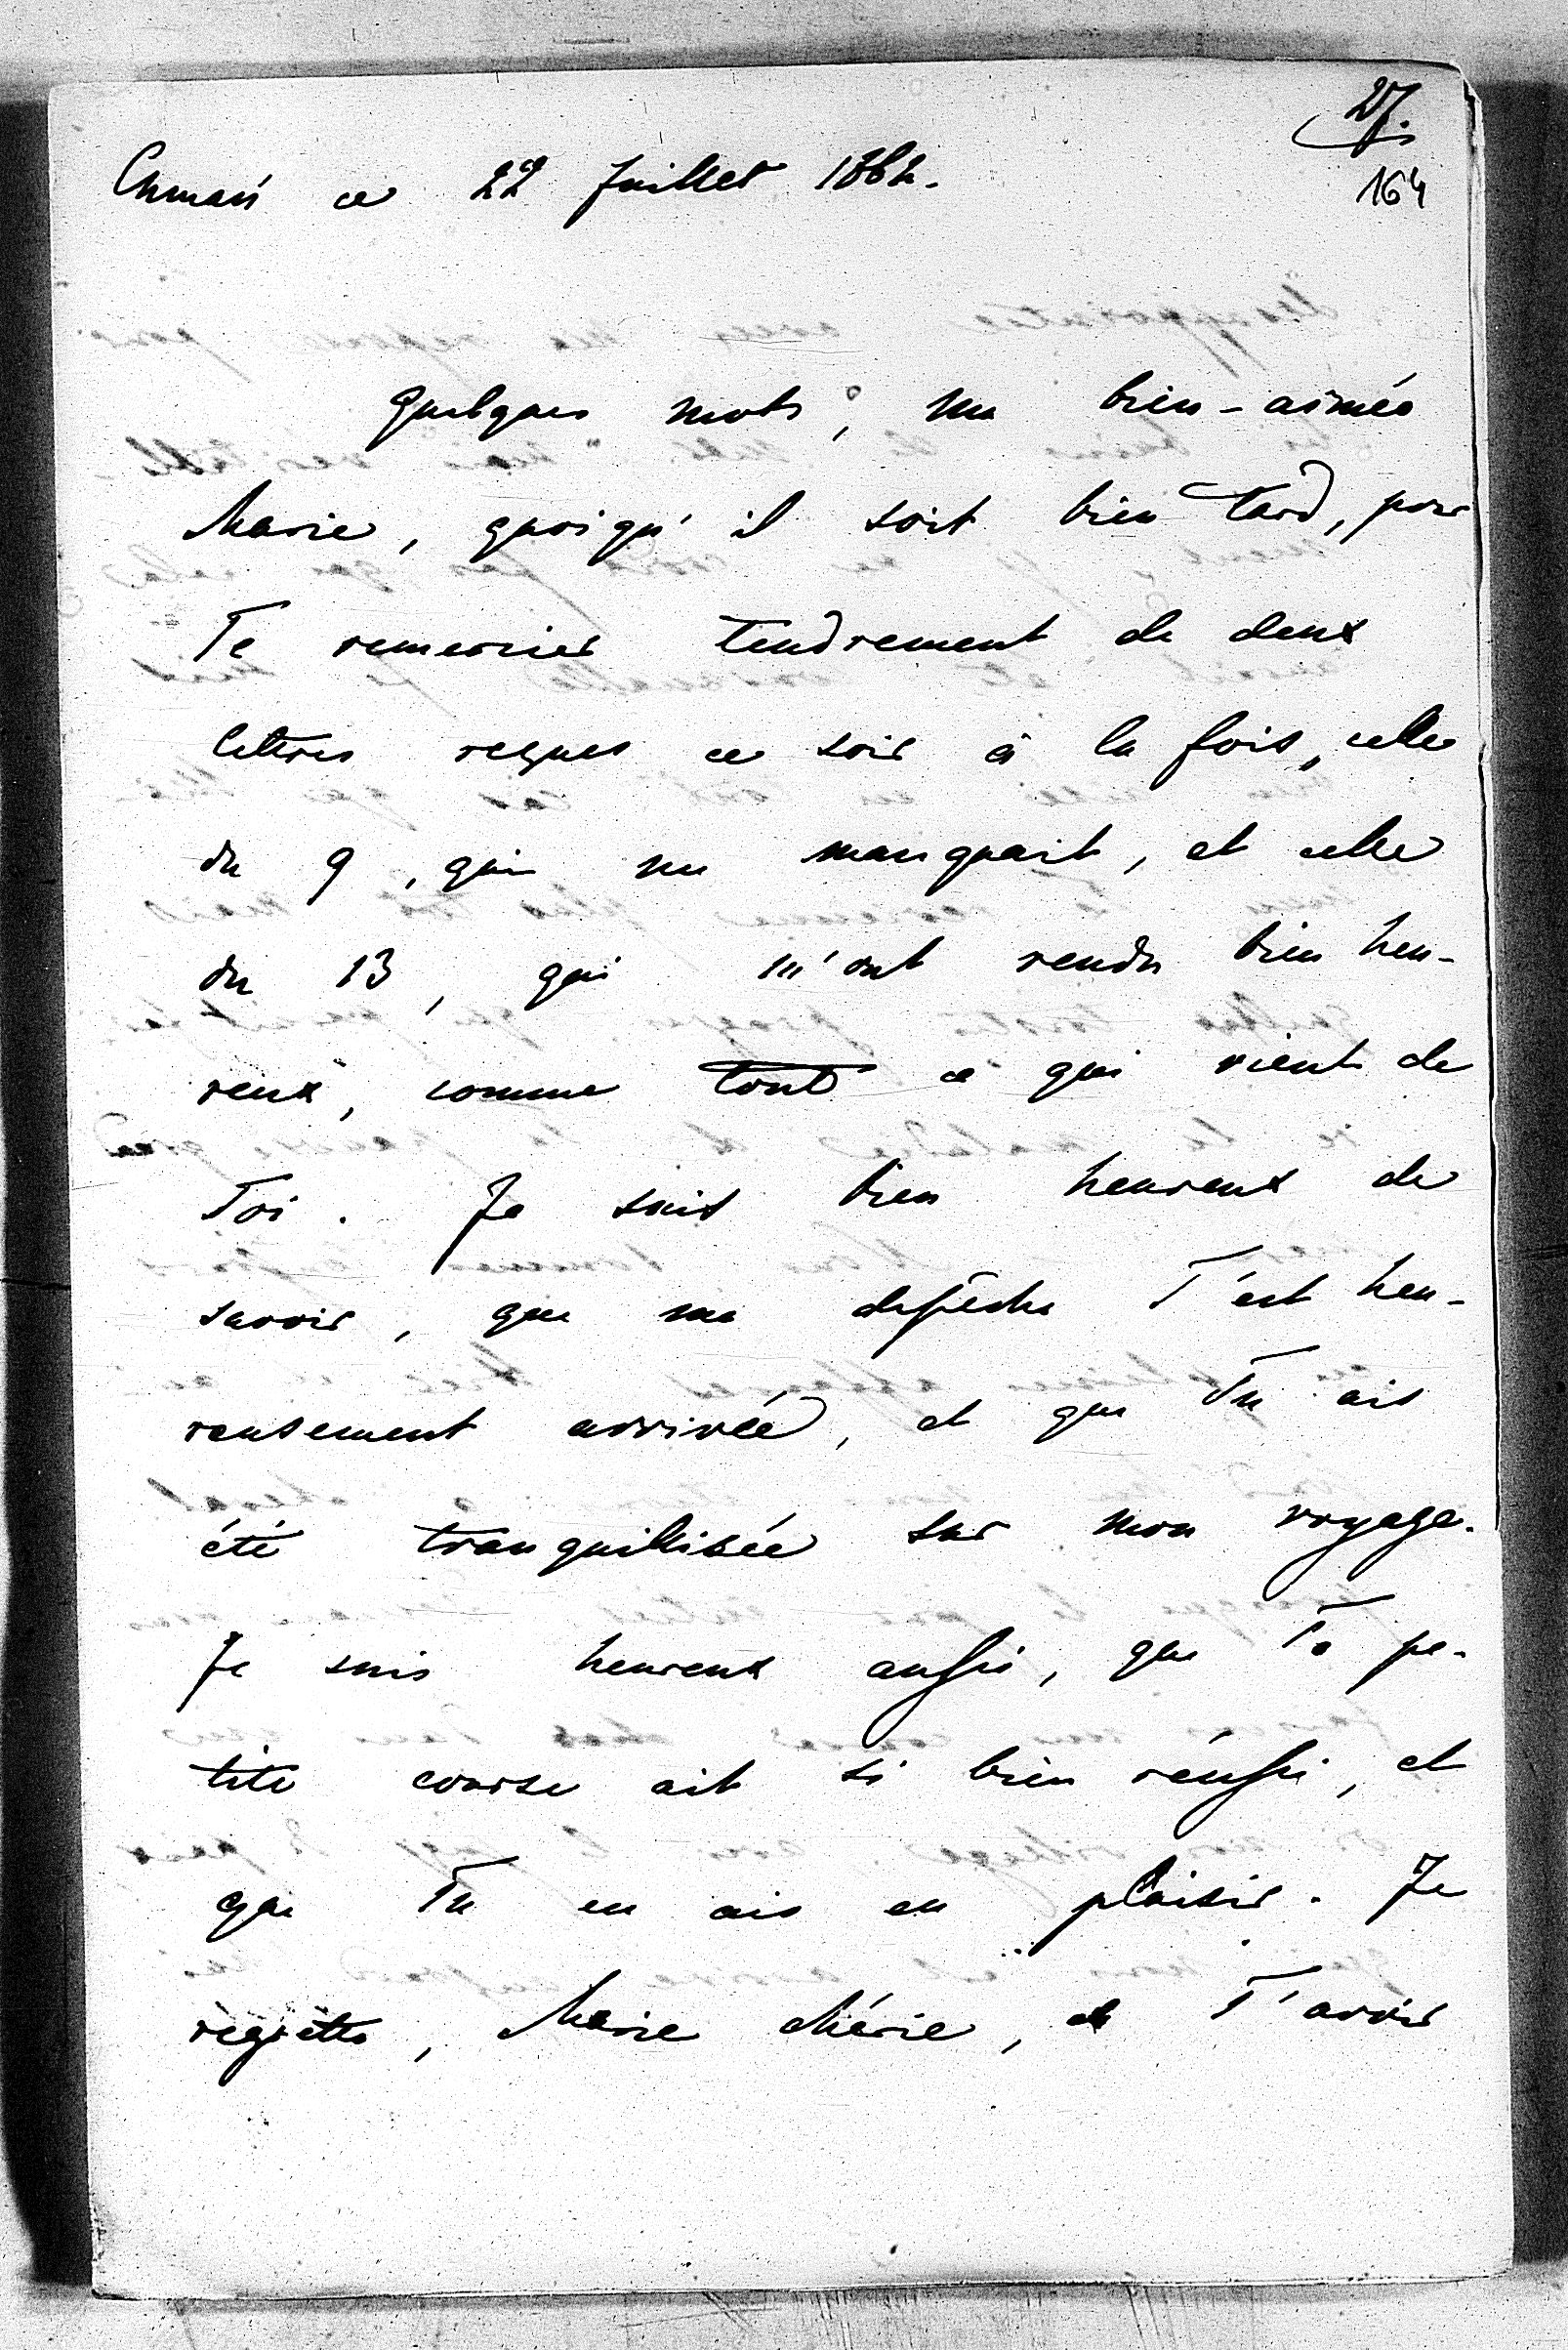 27.
164
Chmań ce 22 Juillet 1862.
Quelques mots, ma bien-aimée
Marie, quoiqu'il soit bien tard, pour
Te remercier tendrement de deux
lettres reçues ce soir à la fois, celle
du 9, qui me manquait, et celle
du 13, qui m'ont rendu bien heu-
reux, comme tout ce qui vient de
Toi. Je suis bien heureux de
savoir, que ma dépêche T'est heu-
reusement arrivée, et que Tu ais
été tranquilisée sur mon voyage.
Je suis heureux aussi, que Ta pe-
tite course ait si bien réussi, et
que Tu en ais eu plaisir. Je
regrette, Marie chérie, de T'avoir